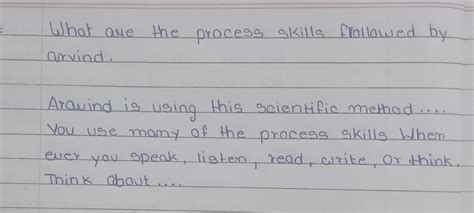 What are the process skills frallowed by
arvind.
Aravind is using this scientific method....
You use many of the process skills When
ever you speak, listen, read, write, Or think.
Think about....